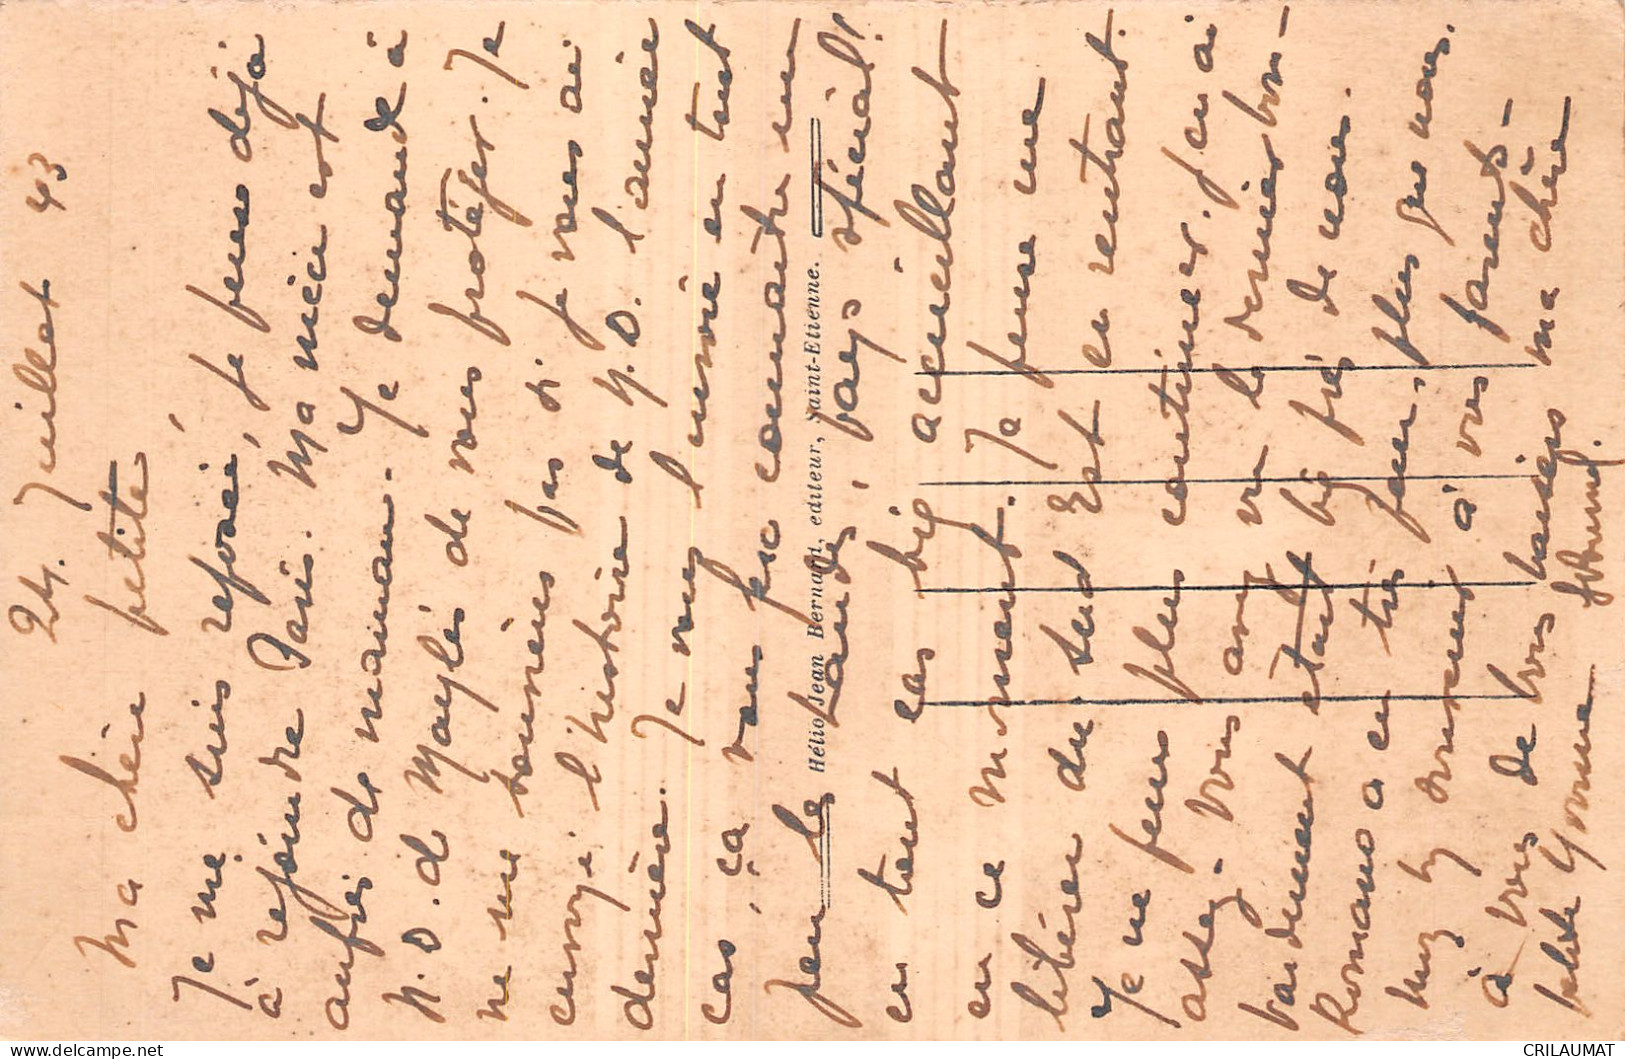 24. Juillet 43
Ma chère petite
Je me suis reposée, je pense déjà
à rejoindre Paris. Ma nièce est
auprès de maman. Je demande à
N. D. de Maylis de vous protéger. Je
ne me souviens pas si je vous ai
envoyé l'histoire de N. D. l'année
dernière. Je vous l'envoie en tout
cas, ça vous fera connaître un
peu les Landes, pays spécial!
en tout cas big accueillant
en ce moment. Je pense une
libérer du sud Est en rentrant.
Je ne peux plus continuer. J'en ai
assez. Vous avez vu le dernier bom-
bardement étant big près de nous.
Romans a eu très peur, plus que nous.
Mon big souvenir à vos parents
à vous de bons baisers ma chère
petite Yvonne
Hélio Jean Bernard, editeur, Saint-Etienne.
CRILAUMAT